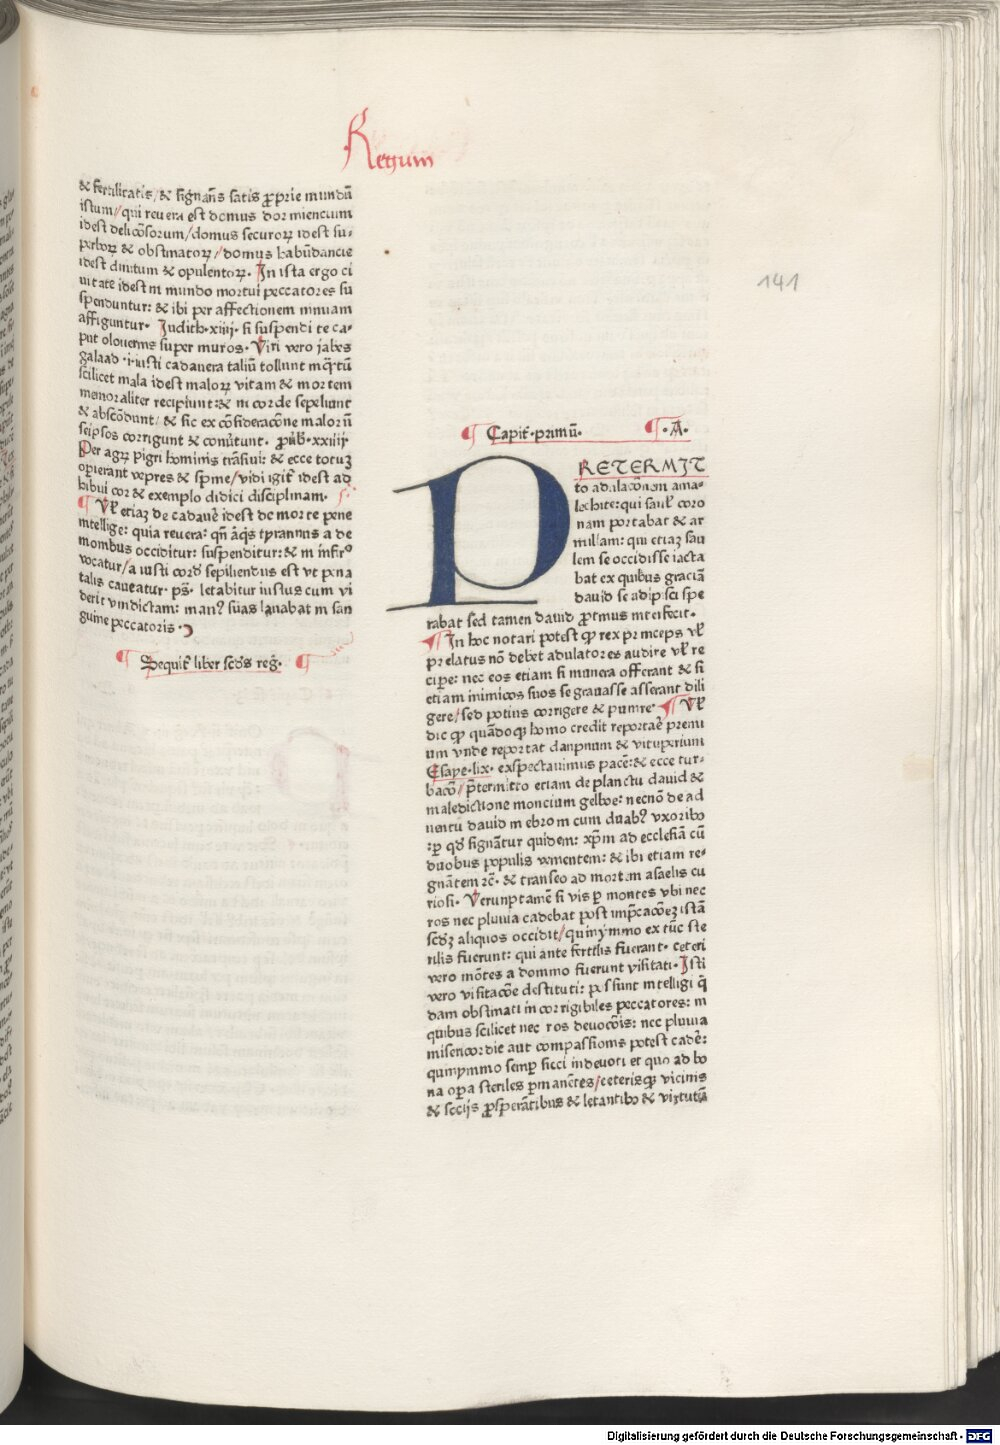 Regum
& fertilitatis/& signans satis ꝓprie mundū
istum/qui reuera est domus dormiencium
idest deliciosorum/domus securoꝝ idest su-
perboꝝ & obstinatoꝝ/domus habūdancie
idest diuitum & opulentoꝝ. In ista ergo ci
uitate idest in mundo mortui peccatores su
spenduntur: & ibi per affectionem nimiam
affiguntur. Judith.xiiij. si suspendite ca-
put olouernis super muros. Viri vero jabes
galaad .i. iusti cadauera taliū tollunt inq̄ntū
scilicet mala idest maloꝝ vitam & mortem
memoraliter recipiunt:& in corde sepeliunt
& abscōdunt/& sic ex cōsideracōne malorū
seipsos corrigunt & conu̓tunt. ꝓub̓.xxiiij.
Per agꝝ pigri hominis trāsiui: & ecce totuꝫ
opierant vepres & spine/vidi igit̓ idest ad
hibui cor & exemplo didici disciplinam.
¶ Vl̓ etiaꝫ de cadaue̓ idest de morte pene
intellige: quia reuera: qn̄ aq̄s tyrannus a de
monibus occiditur: suspenditur: & in infir⁹
vocatur/a iusti cord̓ sepiliendus est vt pena
talis caueatur. ps̓. letabitur iustus cum vi
derit vindictam: man⁹ suas lauabat in san
guine peccatoris.
¶ Sequit̓ liber scd̓s reg̓. ¶
141
¶ Capit̓.primū. ¶ .A.
PRETERMJT
to adulacōnem ama-
lechite:qui saul̓ coro
nam portabat & ar
millam: qui etiaꝫ sau
lem se occidisse iacta
bat ex quibus graciā
dauid se adipisci spe
rabat sed tamen dauid ꝓtinus interfecit.
¶ In hoc notari potest qꝫ rex princeps vl̓
prelatus nō debet adulatores audire vl̓ re
cipere: nec eos etiam si munera offerant & si
etiam inimicos suos se grauasse asserant dili
gere/sed potius corrigere & punire. ¶ Vl̓
dic qꝫ quādoqꝫ homo credit reportare̓ premi
um vnde reportat dampnum & vituperium
Esaye.lix. exspectauimus pacē:& ecce tur-
bacō/p̄termitto etiam de planctu dauid &
maledictione moncium gelboe: necnō de ad
uentu dauid in ebrom cum duab⁹ vxoribo
:ꝑ qd̓ signātur quidem: xp̄m ad ecclesiā cū
duobus populis venientem: & ibi etiam re-
gnātem ⁊c̄. & transeo ad mortem asaelis cu
riosi. Verunptamē si vis ꝑ montes vbi nec
ros nec pluuia cadebat post imp̄cacōeꝫ istā
scd̓ꝫ aliquos occidit/quinymmo ex tūc ste
riles fuerunt: qui ante fertiles fuerant. ceteri
vero mōtes a domino fuerunt visitati. Isti
vero visitacōe destituti: pn̄t intelligi q̄
dam obstinati incorrigibiles peccatores: in
quibus scilicet nec ros deuocōis: nec pluuia
misericordie aut compassionis potest cade̓:
quinymmo semꝑ sicci indeuoti et quo ad bo
na opera steriles ꝑmanētes/ceterisqꝫ vicinis
& sociis ꝓsperātibus & letantibo & virtutū
Digitalisierung gefördert durch die Deutsche Forschungsgemeinschaft - DFG